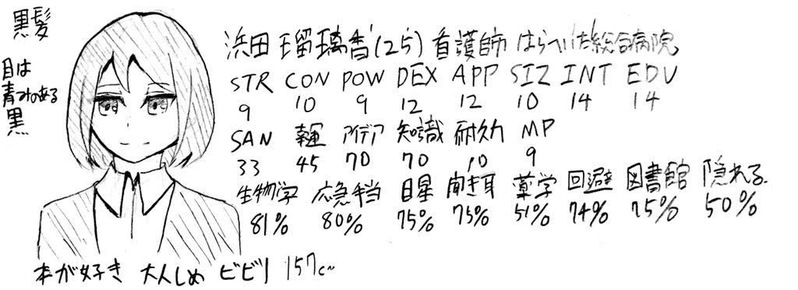 黒髪
目は
青みのある
黒
浜田 瑠璃香(25) 看護師 総合病院
STR CON POW DEX APP SIZ INT EDU
9 10 9 12 12 10 14 14
SAN 幸運 アイデア 知識 耐久力 MP
33 45 70 70 10 9
生物学 応急手当 目星 聞き耳 薬学 回避 図書館 隠れる
81% 80% 75% 75% 51% 74% 75% 50%
本が好き 大人しめ ビビリ 157cm